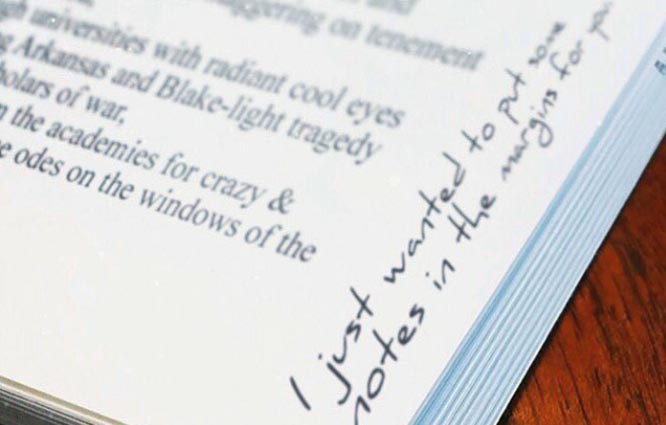 and
ggering on tenement
universities with radiant cool eyes
Arkansas and Blake-light tragedy
holars of war,
the academies for crazy &
odes on the windows of the
I just wanted to put some
notes in the margins for you